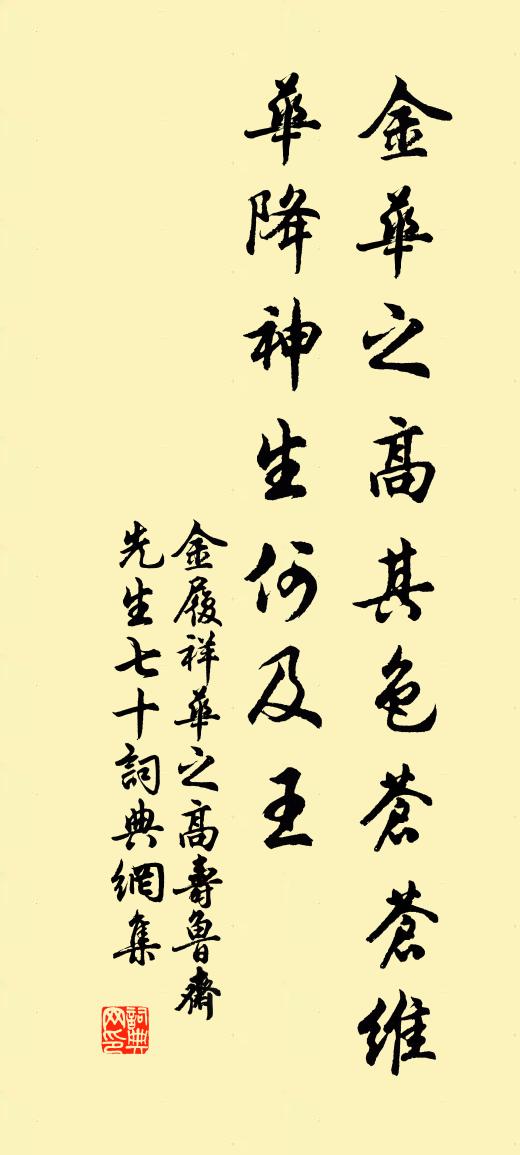 金華之高其色蒼蒼維
華降神生何及王
金履祥華之高壽魯齋
先生七十詞典網集
詞典网印